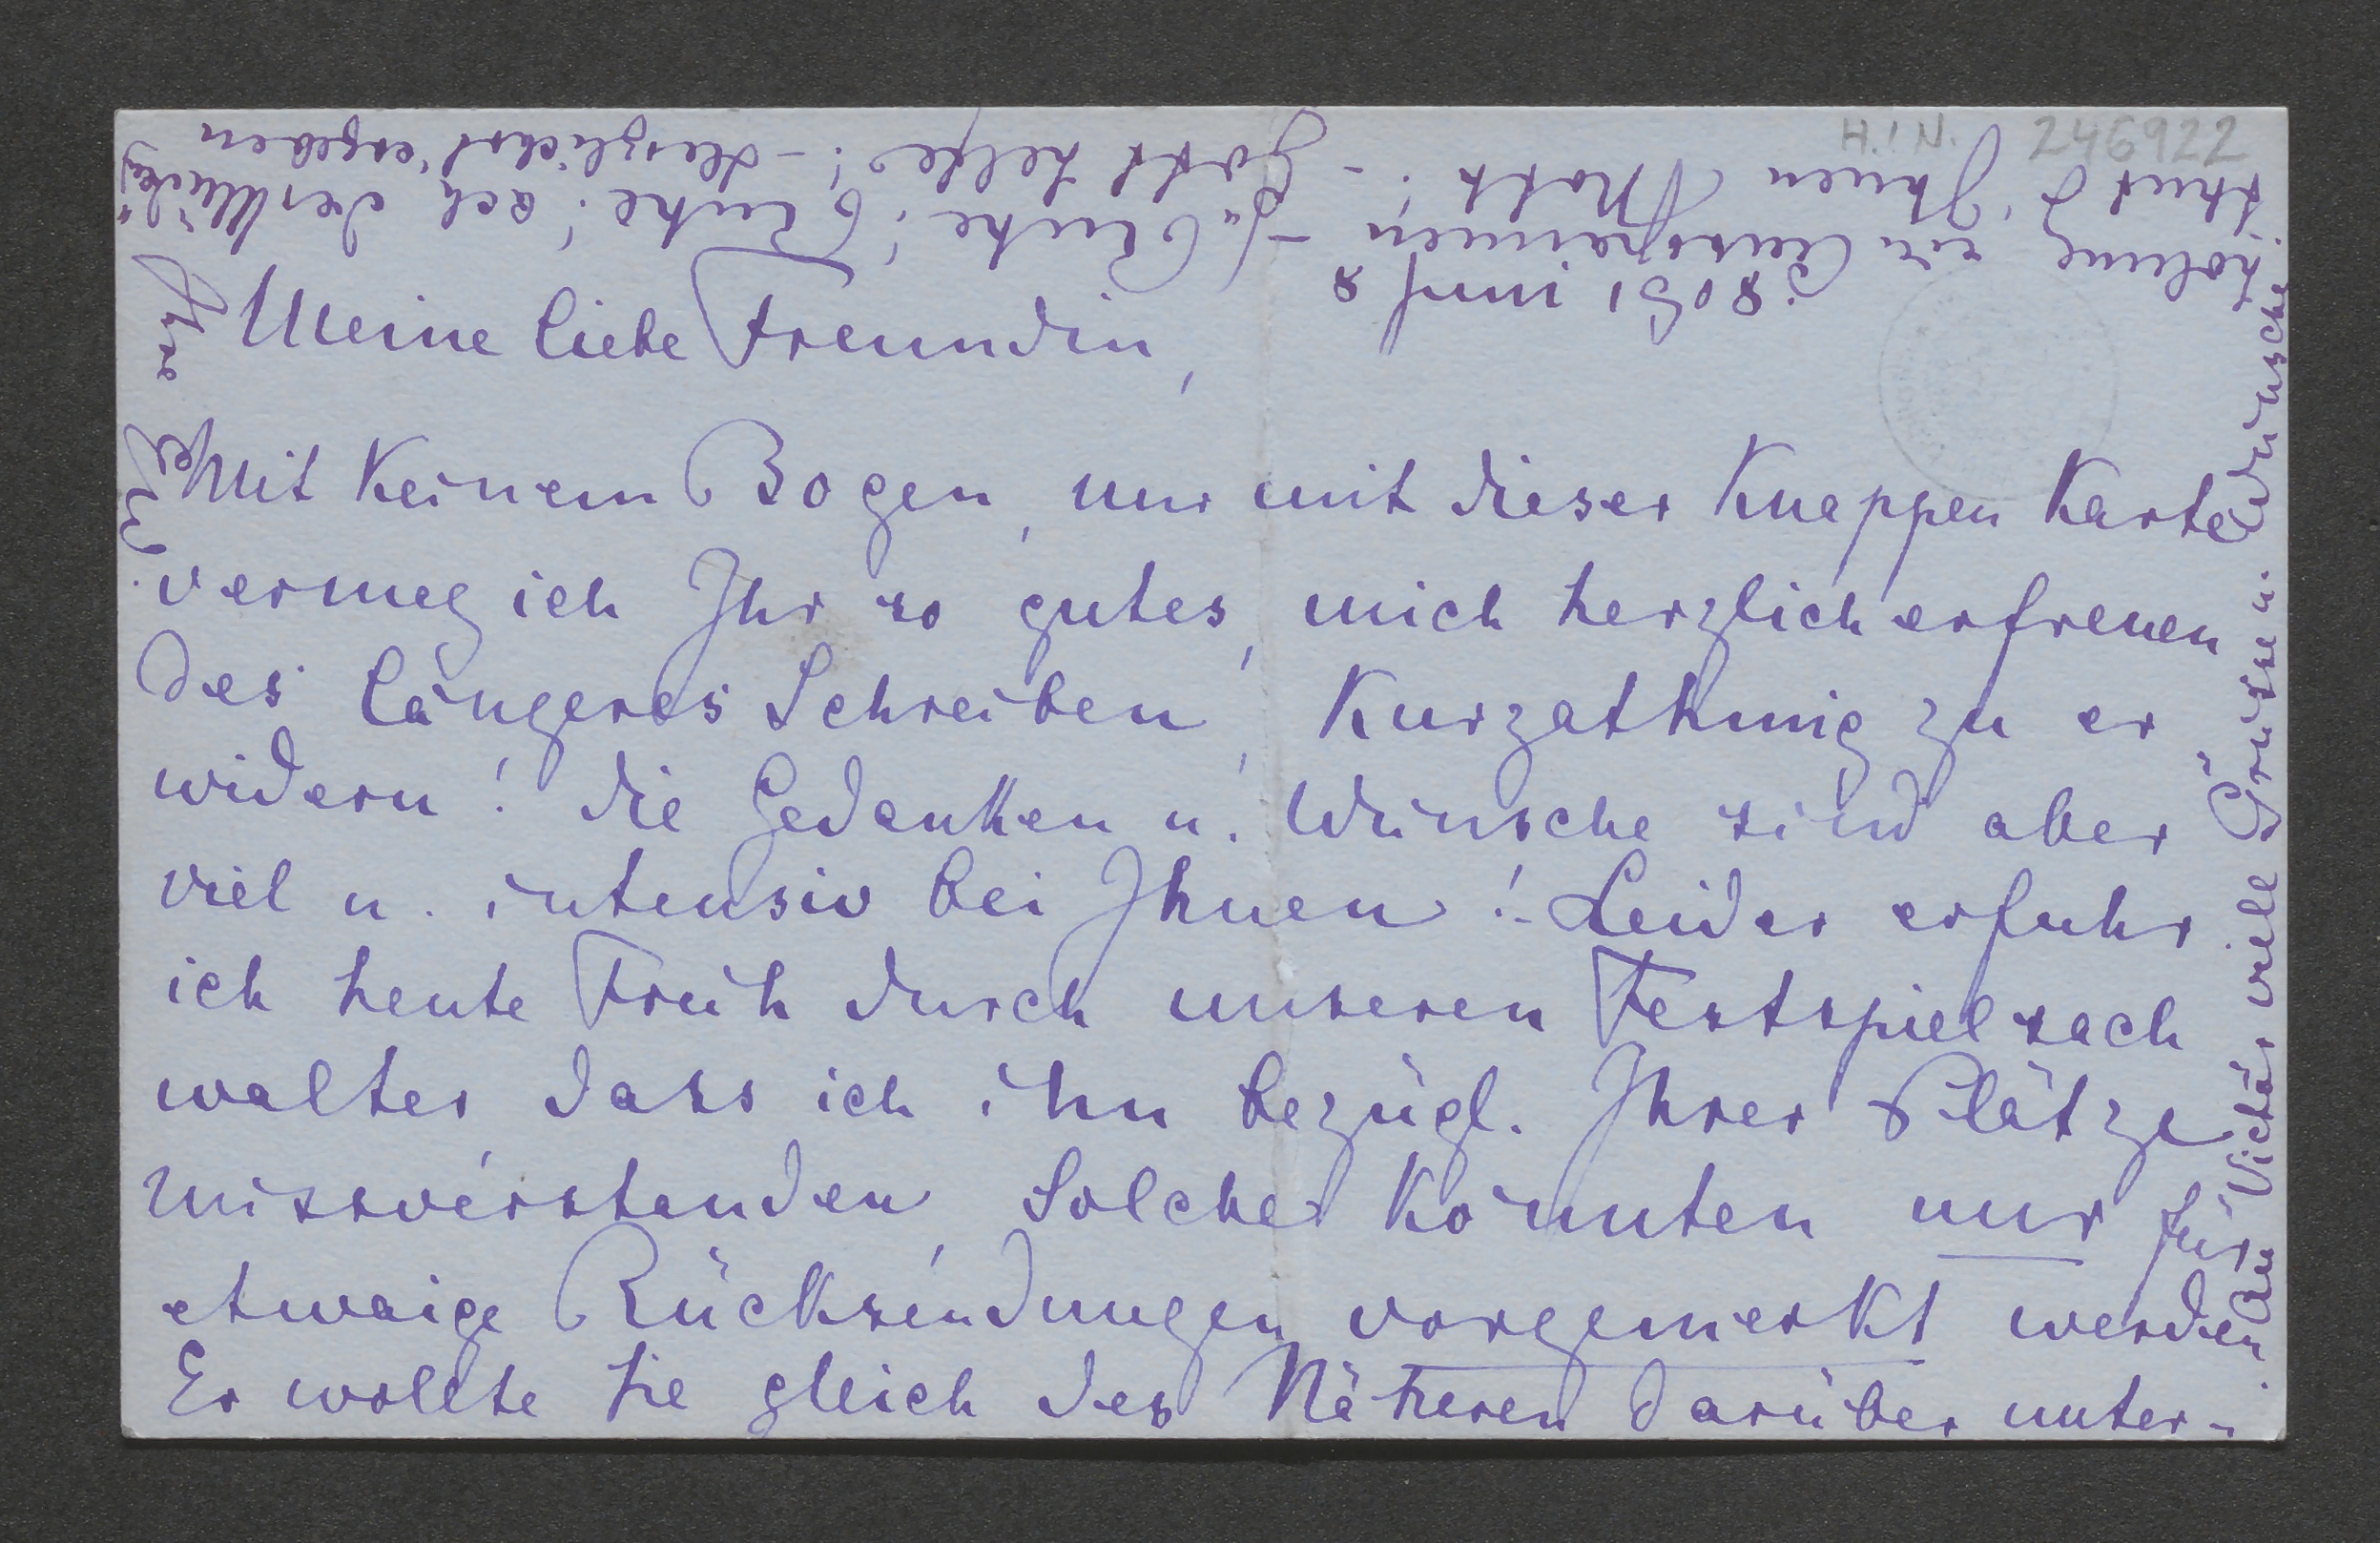 H.I.N. 246922
Meine liebe Freundin,
Mit keinem Bogen, nur mit dieser knappen Karte
vermag ich Ihr so gutes, mich herzlich erfreuen
des längeres Schreiben, kurzathmig zu er
widern! Die Gedanken u. Wünsche sind aber
viel u. intensiv bei Ihnen! – Leider erfuhr
ich heute Früh durch unseren Festspielsach
walter, dass ich ihn bezügl. Ihrer Plätze
missverstanden, Solche könnten nur für
etwaige Rücksendungen vorgemerkt werden.
Er wollte Sie gleich des Näheren darüber unter-
thut Ihnen Noth! – Gott helfe! – Herzlichst ergeben
"Ruhe! Ruhe! ach der Müden
Ihre
An Victor viele Grüsse u. Wünsche!